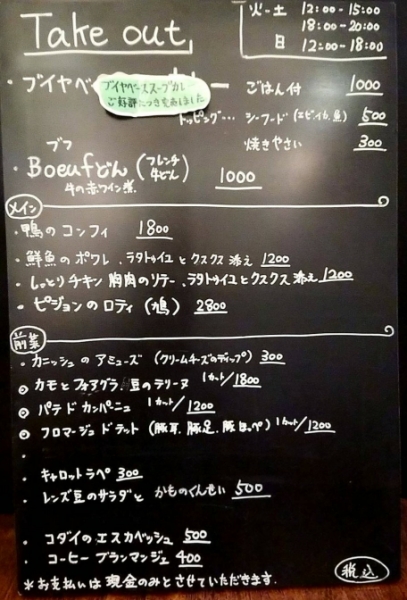 Take out
火-土 12:00-15:00
18:00-20:00
日 12:00-18:00
・ブイヤベ ー ごはん付 1000
ブイヤベーススープカレー
ご好評につき完売しました
トッピング… シーフード(エビ・イカ・魚) 500
焼きやさい 300
ブフ
・Boeufどん(フレンチ牛どん) 1000
牛の赤ワイン煮
メイン
・鴨のコンフィ 1800
・鮮魚のポワレ、ラタトゥイユとクスクス添え 1200
・しっとりチキン胸肉のソテー、ラタトゥイユとクスクス添え 1200
・ピジョンのロティ(鳩) 2800
前菜
・カニッシュのアミューズ(クリームチーズのディップ) 300
◎カモとフォアグラ、豆のテリーヌ 1カット/1800
◎パテドカンパーニュ 1カット/1200
◎フロマージュドテット(豚耳、豚足、豚ほっぺ) 1カット/1200
・
・キャロットラペ 300
・レンズ豆のサラダと かものくんせい 500
・コダイのエスカベッシュ 500
・コーヒーブランマンジェ 400
税込
*お支払いは現金のみとさせていただきます.